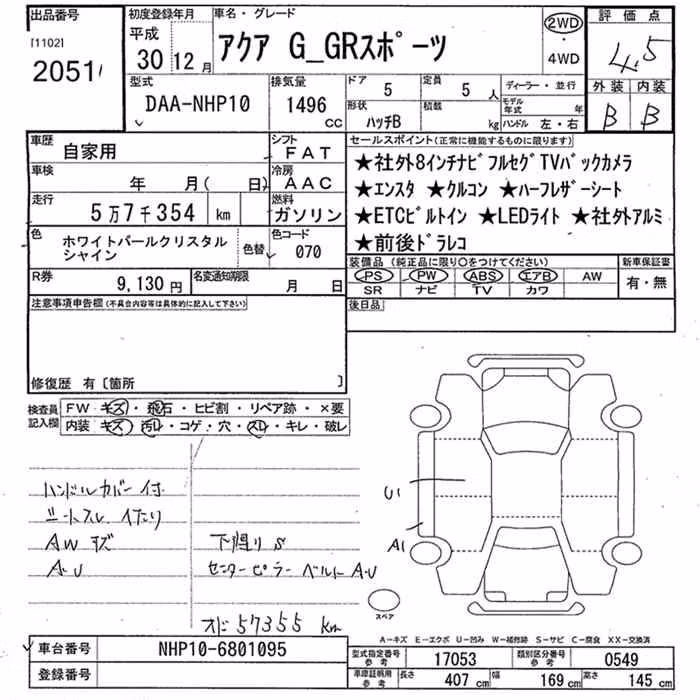 出品番号
[1102]
2051
初度登録年月
平成
30 12月
車名・グレード
アクア G_GRスポーツ
2WD
・
4WD
評価点
4.5
外装 内装
B B
型式
DAA-NHP10
排気量
1496 CC
ドア
5
定員
5人
形状
ハッチB
積載
kg
ディーラー・並行
モデル年式 年
ハンドル 左・右
車歴
自家用
シフト
FAT
車検
年 月( 日)
冷房
AAC
走行
5万7千354 km
燃料
ガソリン
色
ホワイトパールクリスタル
シャイン
色替
色コード
070
R券
9,130円
名変通知期限
月 日
セールスポイント(正常に機能するものに限ります)
★社外8インチナビフルセグTVバックカメラ
★エンスタ ★クルコン ★ハーフレザーシート
★ETCビルトイン ★LEDライト ★社外アルミ
★前後ドラレコ
装備品 (純正品に限り○をつけてください)
PS PW ABS エアB AW
SR ナビ TV カワ
新車保証書
有・無
後日品
注意事項申告欄(不具合内容等は具体的に記入して下さい)
修復歴 有〔箇所 〕
検査員
記入欄
FW キズ・飛石・ヒビ割・リペア跡・×要
内装 キズ・汚レ・コゲ・穴・スレ・キレ・破レ
ハンドルカバー付
シートスレ イタリ
AWキズ
A・U
下廻りS
センターピラー ベルトA・U
オド57355km
U1
A1
スペア
A-キズ E-エクボ U-凹み W-補修跡 S-サビ C-腐食 XX-交換済
車台番号
NHP10-6801095
登録番号
型式指定番号
参考
17053
類別区分番号
参考
0549
車庫証明用
参考
長さ 407cm
幅 169cm
高さ 145cm